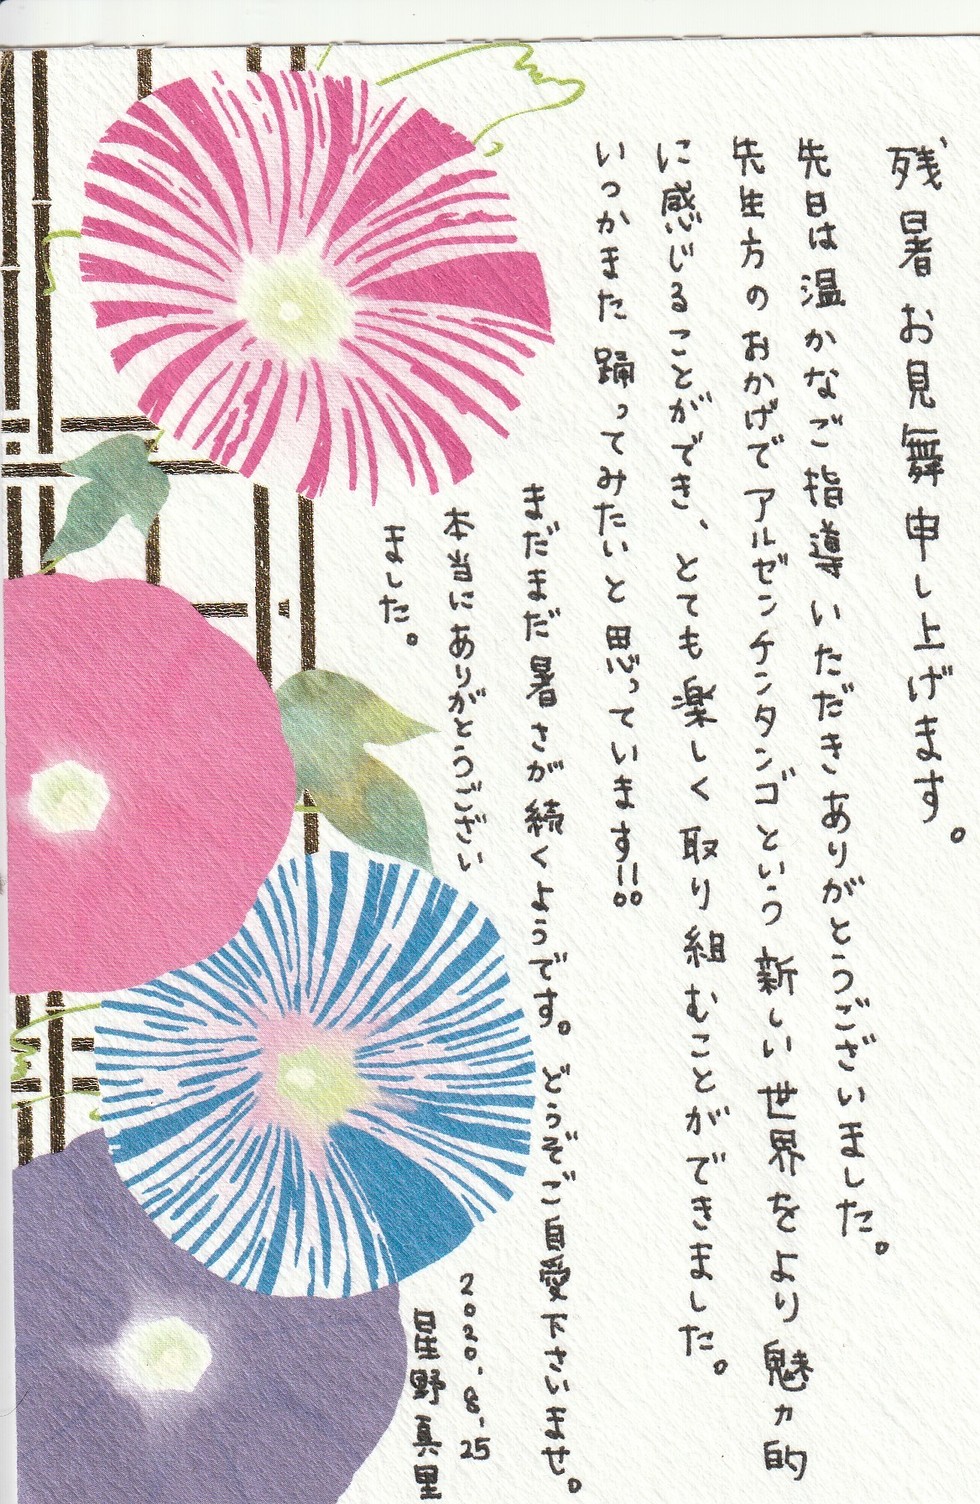 残暑お見舞申し上げます。
先日は温かなご指導いただきありがとうございました。
先生方のおかげでアルゼンチンタンゴという新しい世界をより魅力的
に感じることができ、とても楽しく取り組むことができました。
いつかまた踊ってみたいと思っています!!
まだまだ暑さが続くようです。どうぞご自愛下さいませ。
本当にありがとうござい
ました。
2020.8.25
星野真里